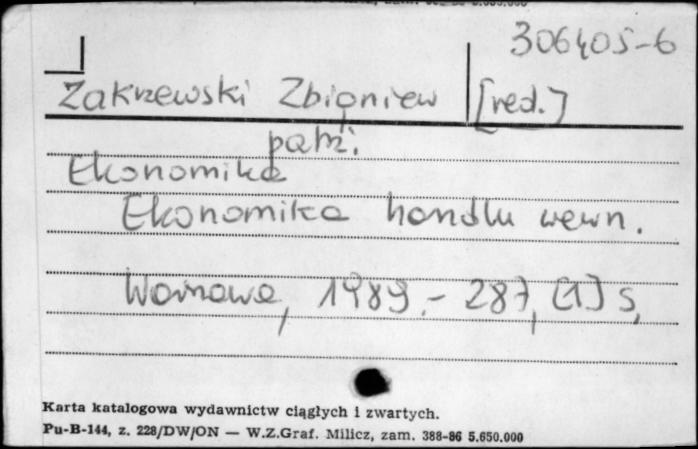 306405-6
Zakrzewski Zbigniew [red.]
patrz:
Ekonomika
Ekonomika handlu wewn.
Warszawa, 1989.- 287, [1] s.
Karta katalogowa wydawnictw ciągłych i zwartych.
Pu-B-144, z. 228/DW/ON — W.Z.Graf. Milicz, zam. 388-86 5.650.000